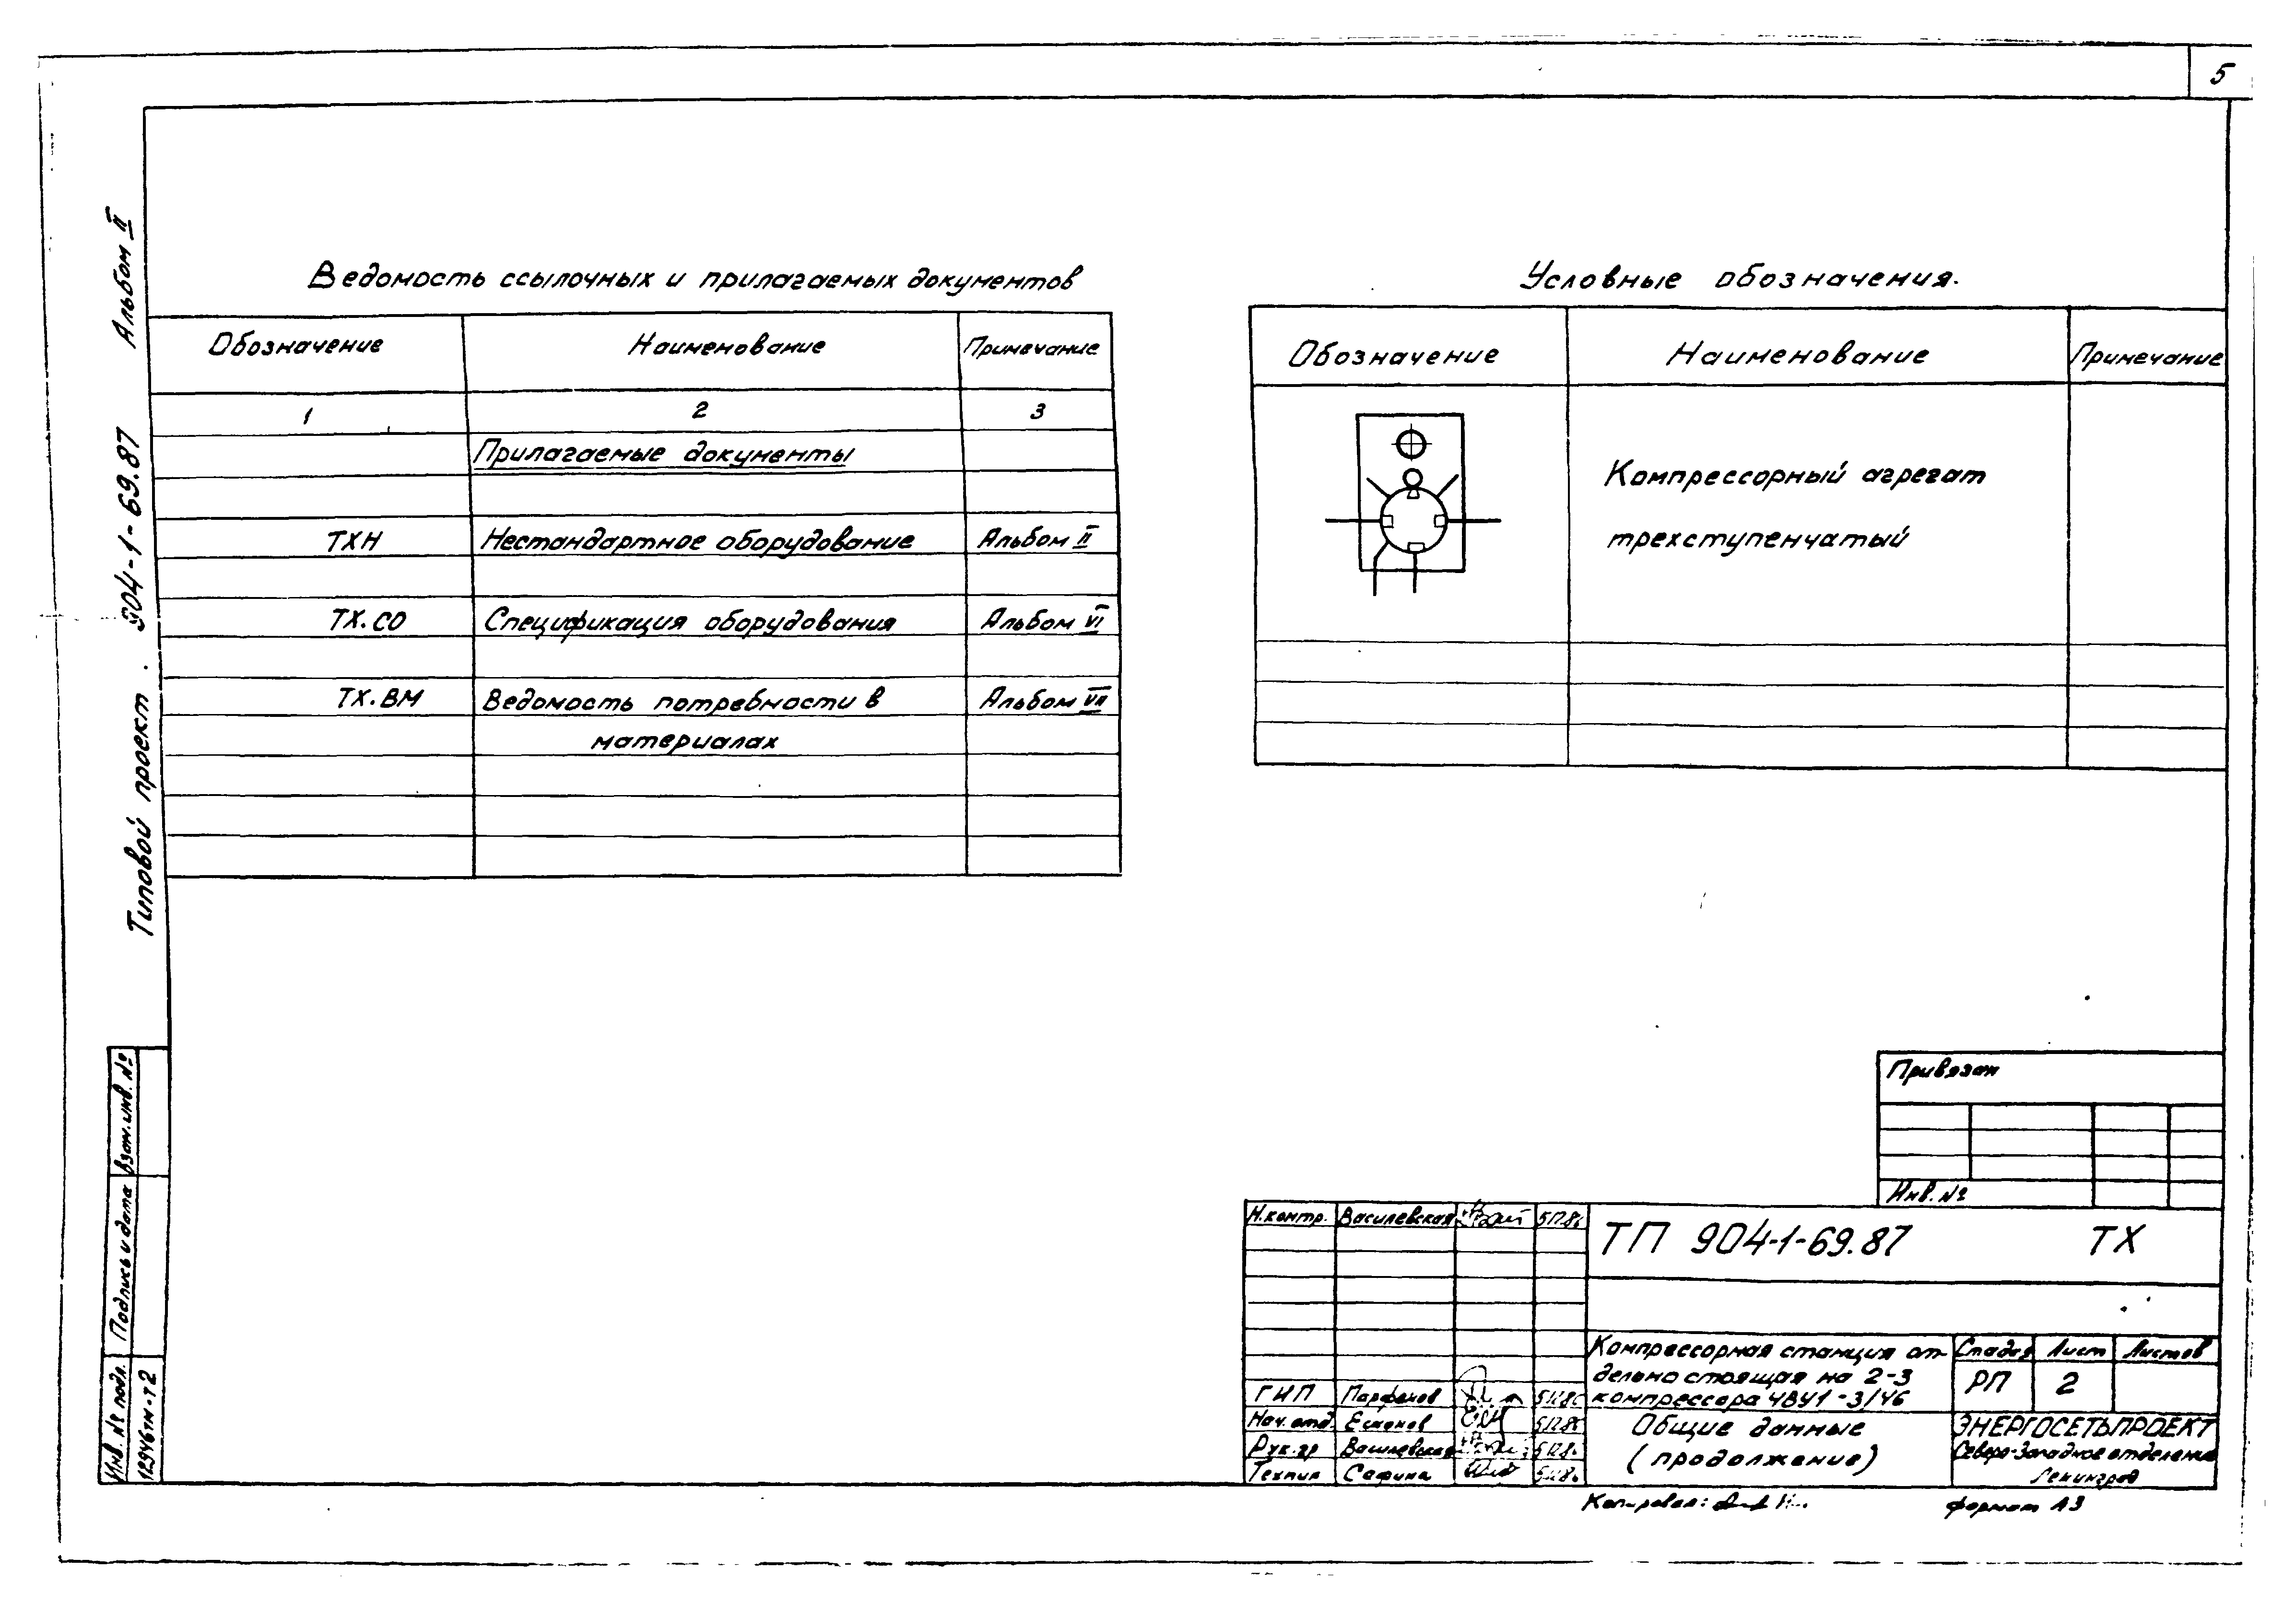 5
Альбом II
Типовой проект. 904-1-69.87
Ведомость ссылочных и прилагаемых документов
Обозначение Наименование Примечание
1 2 3
Прилагаемые документы
ТХН Нестандартное оборудование Альбом II
ТХ.СО Спецификация оборудования Альбом VI
ТХ.ВМ Ведомость потребности в Альбом VII
материалах
Условные обозначения.
Обозначение Наименование Примечание
Компрессорный агрегат
трехступенчатый
Взам. инв. №
Подпись и дата
Инв. № подл.
12946тм-т2
Привязан
Инв. №
Н.контр. Василевская
ТП 904-1-69.87 ТХ
Компрессорная станция от-
дельно стоящая на 2-3
компрессора 4ВУ1-3/46
Стадия Лист Листов
РП 2
ГИП Парфенов
Нач. отд. Есионов
Рук. гр Василевская
Техник Сафина
Общие данные
(продолжение)
ЭНЕРГОСЕТЬПРОЕКТ
Северо-Западное отделение
Ленинград
Копировал:
формат А3